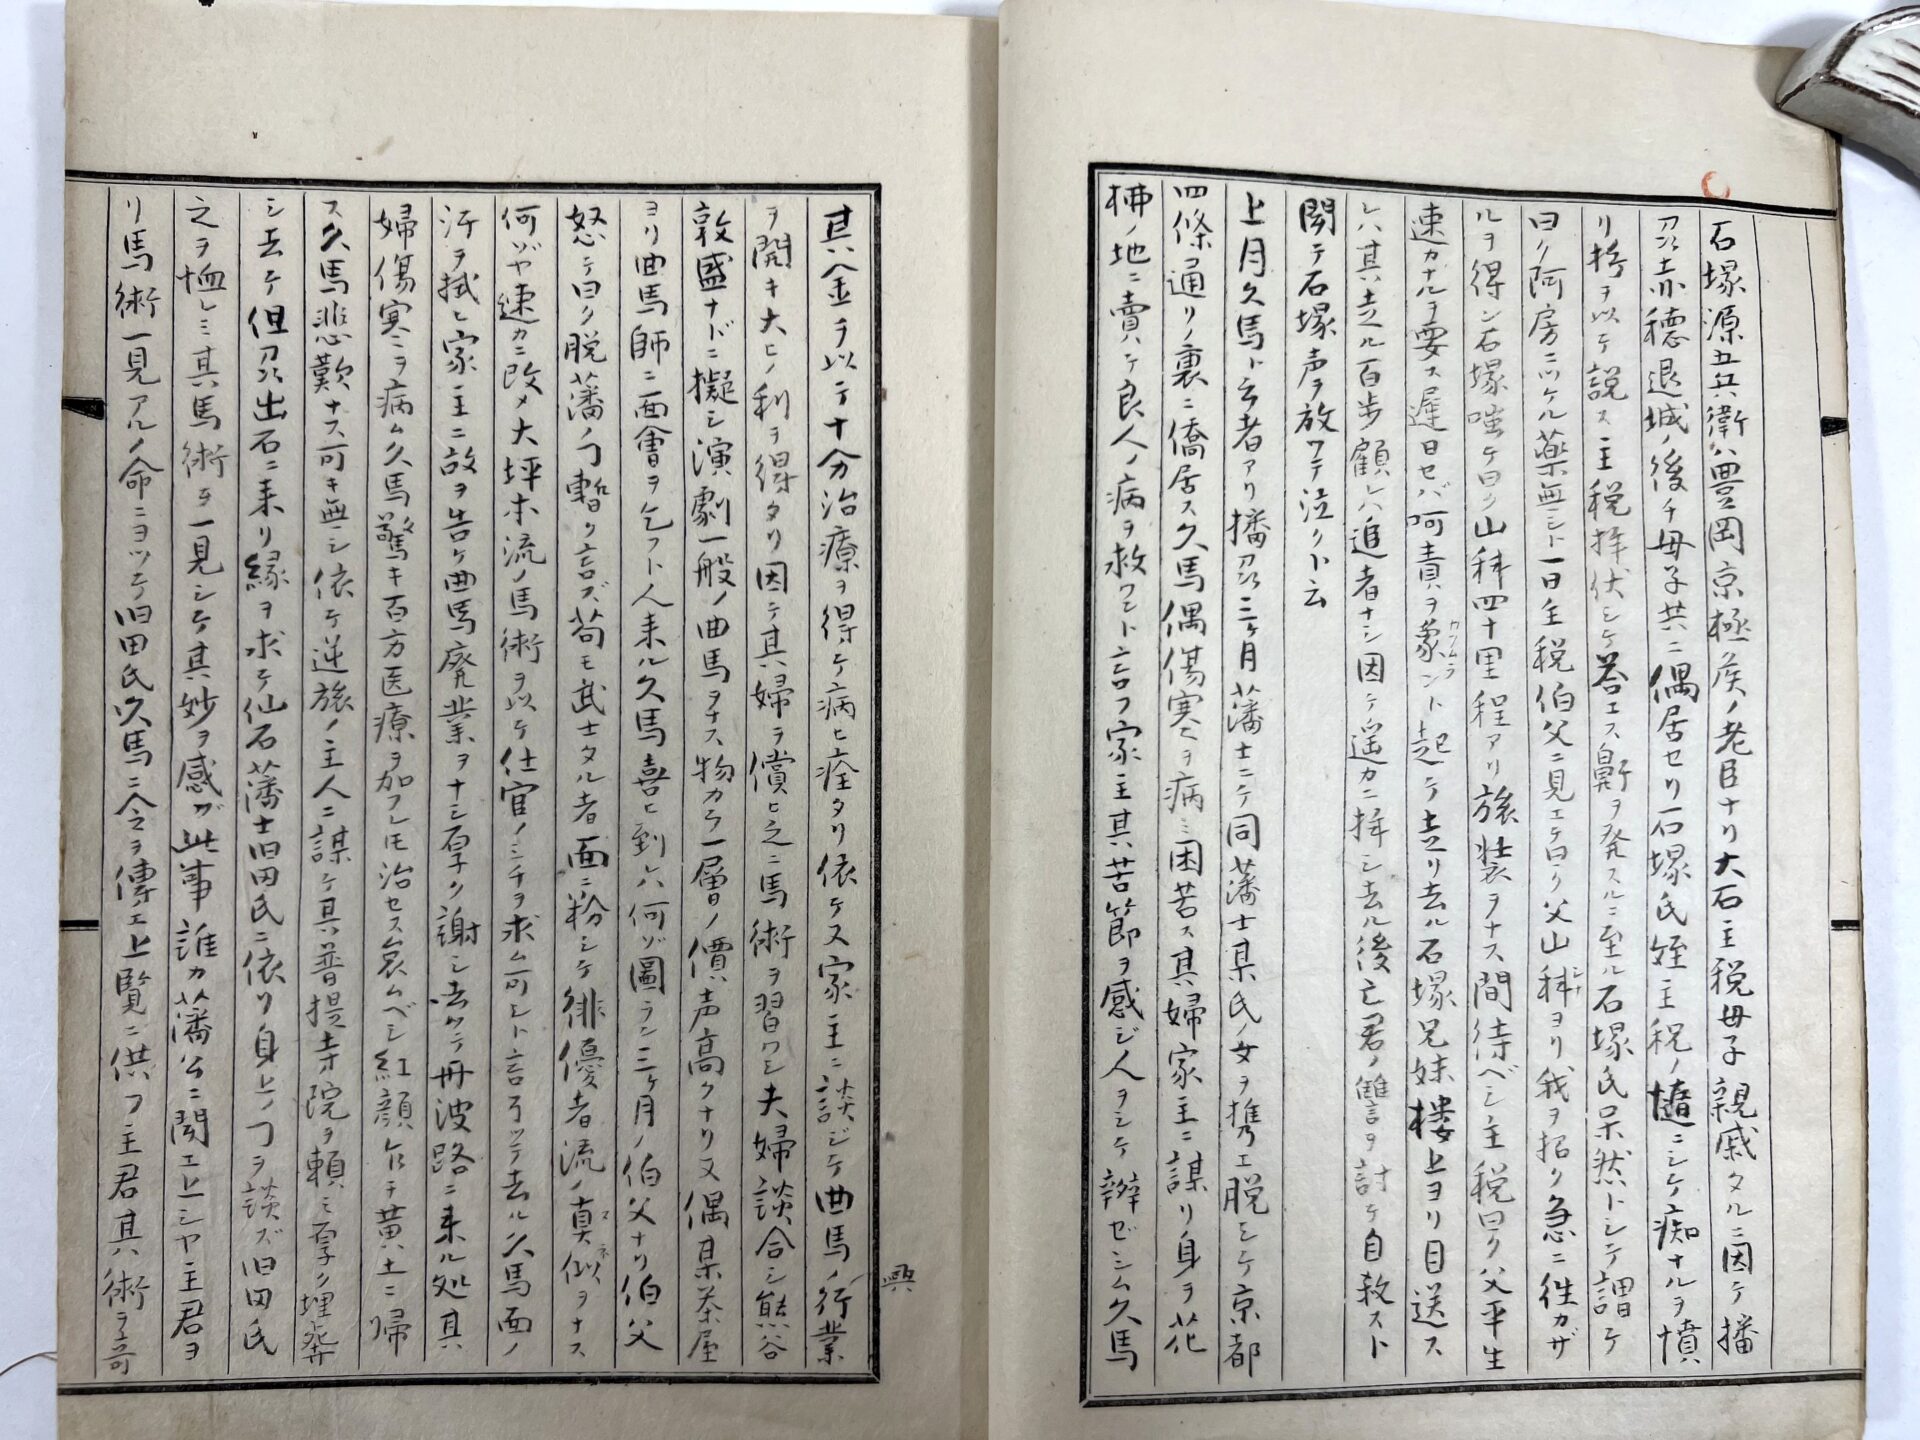 石塚源五兵衛ハ豊岡京極侯ノ老臣ナリ大石主税母子親戚タルニ因テ播
州赤穂退城ノ後チ母子共ニ偶居セリ石塚氏姪主税ノ惰ニシテ痴ナルヲ憤
リ將ヲ以テ説ス主税拝伏シテ答エス鼾ヲ発スルニ至ル石塚氏呆然トシテ謂テ
曰ク阿房ニツケル薬無シト一日主税伯父ニ見エテ曰ク父山科ヨリ我ヲ招ク急ニ往カザ
ルヲ得ン石塚嗤テ曰ク山科四十里程アリ旅装ヲナス間待ベシ主税曰ク父平生
速カナルヲ要ス遅日セバ呵責ヲ蒙ント起テ立リ去ル石塚兄妹楼上ヨリ目送ス
レハ其立ル百歩顧レハ追者ナシ因テ遥カニ拝シ去ル後亡君ノ讐ヲ討テ自殺スト
聞テ石塚声ヲ放ワテ泣クト云
上月久馬ト云者アリ播州三ヶ月藩士ニテ同藩士某氏ノ女ヲ携エ脱シテ京都
四條通リノ裏ニ僑居ス久馬偶傷寒ヲ病ミ困苦ス其婦家主ニ謀リ身ヲ花
柳ノ地ニ賣ハテ良人ノ病ヲ救ワント言フ家主其苦節ヲ感ジ人ヲシテ辨ゼシム久馬
其ハ金ヲ以テ十分治療ヲ得テ病ヒ痊タリ依テ又家主ニ談ジテ曲馬ノ行業
ヲ開キ大ヒノ利ヲ得タリ因テ其婦ヲ償ヒ之ニ馬術ヲ習ワシ夫婦談合シ熊谷
敦盛ナドニ擬シ演劇一般ノ曲馬ヲナス物カラ一層ノ價声高クナリ又偶某茶屋
ヨリ曲馬師ニ面會ヲ乞フト人来ル久馬喜ヒ到レハ何ゾ圖ラン三ヶ月ノ伯父ナリ伯父
怒テ曰ク脱藩ノヿ暫ク言ズ苟モ武士タル者面ニ粉シテ俳優者流ノ真似ヲナス
何ゾヤ速カニ改メ大坪本流ノ馬術ヲ以テ仕官ノミチヲ求ム可シト言ヲワッテ去ル久馬面ノ
汗ヲ拭ヒ家主ニ故ヲ告ケ曲馬廃業ヲナシ厚ク謝シ去ワテ丹波路ニ来ル処其
婦傷寒ヲ病ム久馬驚キ百方医療ヲ加フレモ治セス哀ムベシ紅顔乍チ黄土ニ帰
ス久馬悲歎ナス可キ無シ依テ逆旅ノ主人ニ謀テ其菩提寺院ヲ頼ミ厚ク埋葬
シ去テ但州出石ニ来リ縁ヲ求テ仙石藩士旧田氏ニ依リ身上ノヿヲ談ズ旧田氏
之ヲ恤レミ其馬術ヲ一見シテ其妙ヲ感ガ此事誰カ藩公ニ聞エ上シヤ主君ヨ
リ馬術一見アルノ命ニヨッテ旧田氏久馬ニ令ヲ傳エ上覧ニ供フ主君其術ヲ奇